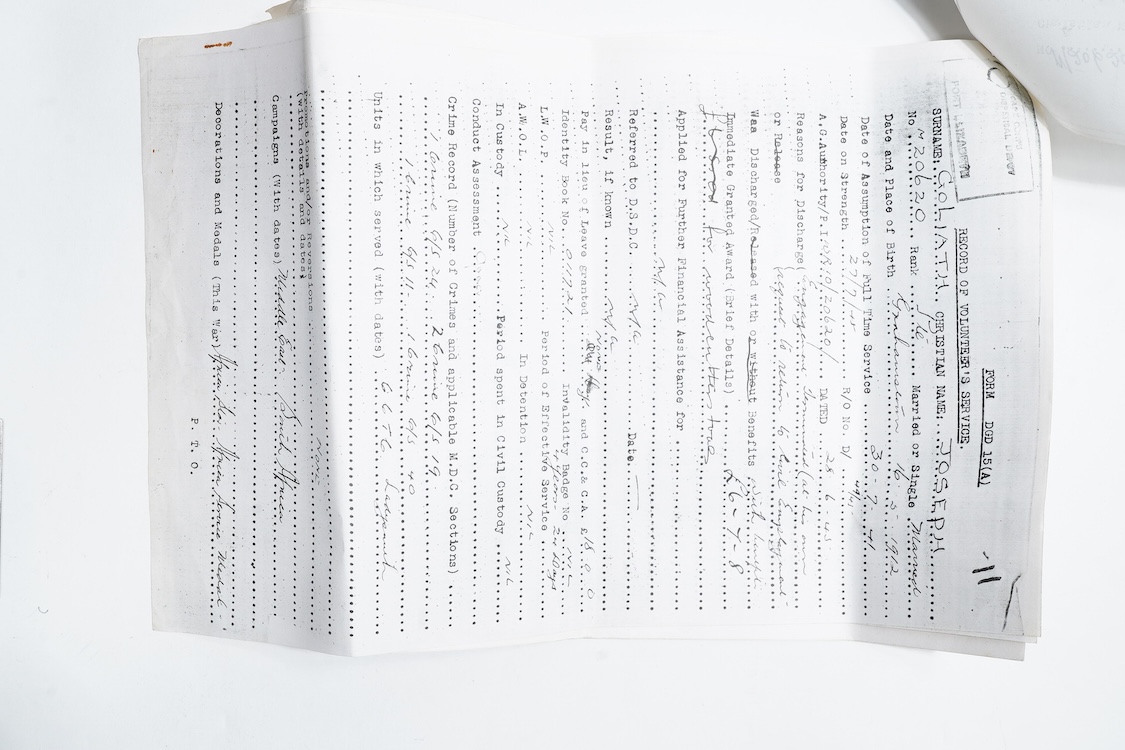 FORM DGD 15(A)
RECORD OF VOLUNTEER'S SERVICE.
SURNAME: GOLIATH. CHRISTIAN NAME: JOSEPH
No. M20620 Rank Pte Married or Single Married
Date and Place of Birth Grahamstown 16. 2. 1912
Date of Assumption of Full Time Service 30 - 7 - 41
Date on Strength 27/7/45 R/O No. D/
A.G. Authority/P. DATED 28. 6. 45
Reasons for Discharge ( Engagement Terminated (at his own
or Release request to return to civil employment.
Was Discharged/Released with or without Benefits with benefits
Immediate Granted Award (Brief Details) £6 - 7 - 8
Applied for Further Financial Assistance for
N.A.
Referred to D.S.D.C. N.A. Date —
Result, if known N.A.
Pay in lieu of Leave granted None and C.C. & C.A. £15. 0. 0
Identity Book No. Invalidity Badge No NIL
L.W.O.P. NIL Period of Effective Service 4 years 24 days
A.W.O.L. NIL In Detention NIL
In Custody NIL Period spent in Civil Custody NIL
Conduct Assessment Good
Crime Record (Number of Crimes and applicable M.D.C. Sections)
1 Crime G/S 24. 2 Crime G/S 19.
1 Crime G/S 11. 1 Crime G/S 40
Units in which served (with dates) C.C. Ladysmith
Promotions and/or Reversions None
(with details and dates)
Campaigns (With dates) Middle East. South African
Decorations and Medals (This War) African Star. Africa Service Medal.
P. T. O.